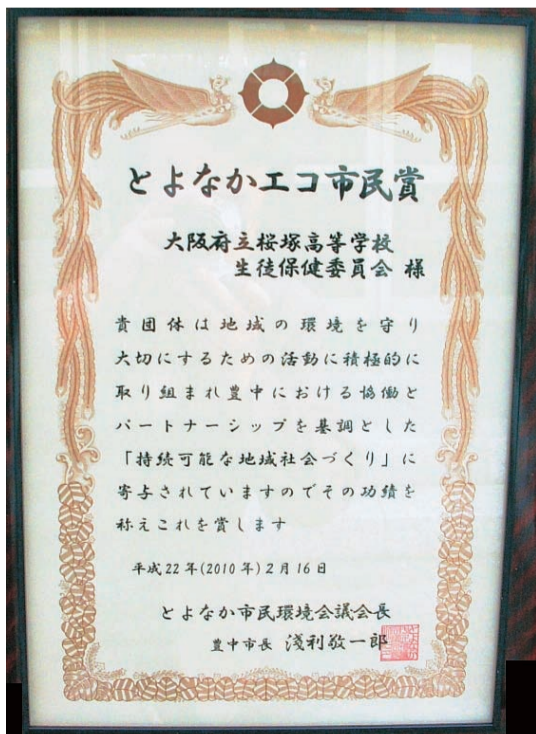 とよなかエコ市民賞
大阪府立桜塚高等学校
生徒保健委員会 様
貴団体は地域の環境を守り
大切にするための活動に積極的に
取り組まれ豊中における協働と
パートナーシップを基調とした
「持続可能な地域社会づくり」に
寄与されていますのでその功績を
称えこれを賞します
平成22年(2010年)2月16日
とよなか市民環境会議会長
豊中市長 淺利敬一郎